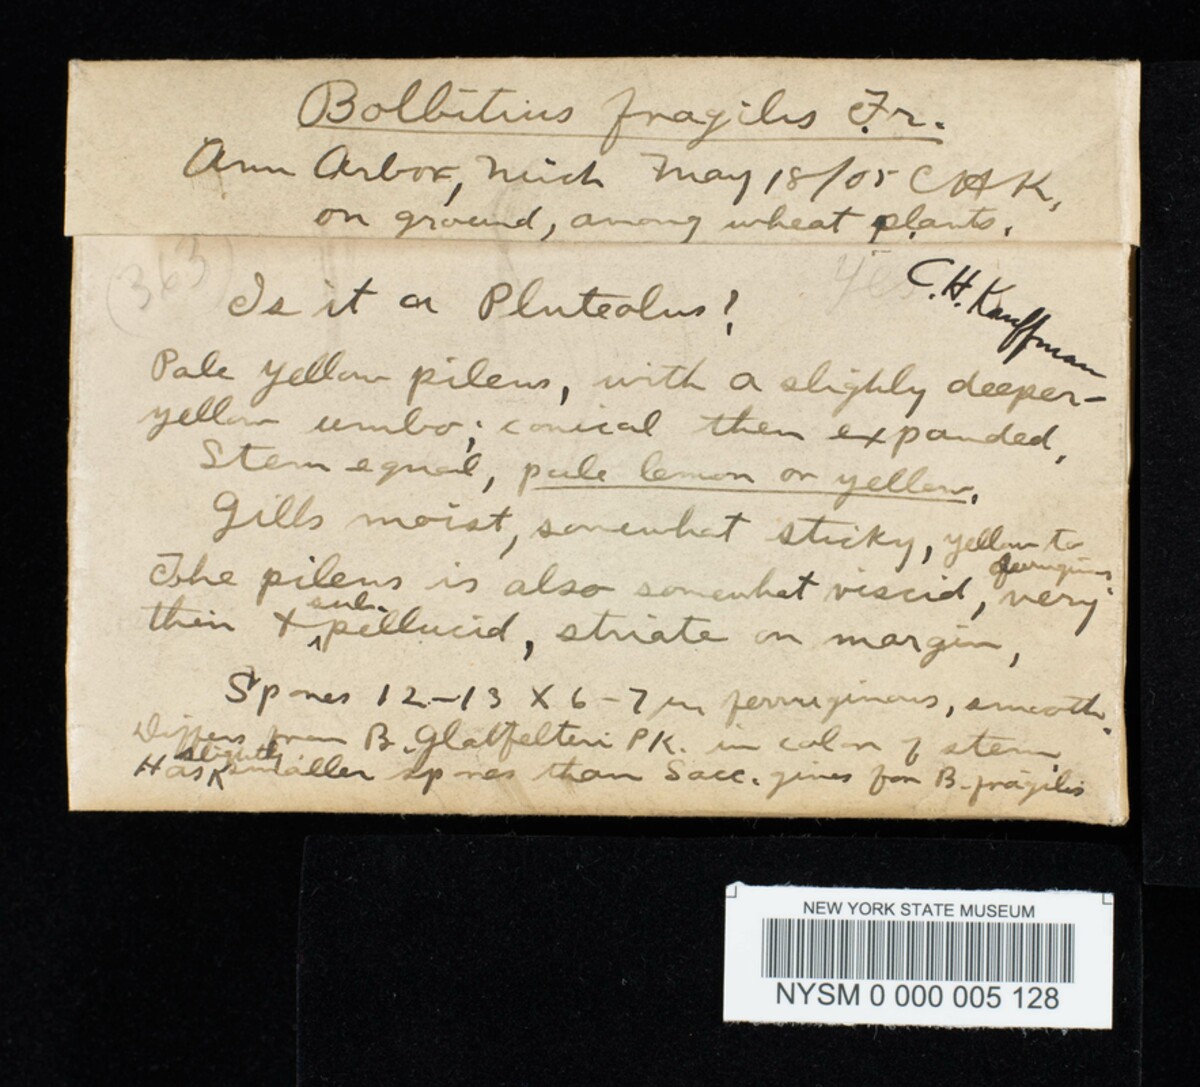 Bolbitius fragilis Fr.
Ann Arbor, Mich May 18/05 CHK,
on ground, among wheat plants.
(363)
Yes
C.H. Kauffman
Is it a Pluteolus?
Pale yellow pileus, with a slighly deeper-
yellow umbo; conical then expanded,
Stem equal, pale lemon or yellow.
Gills moist, somewhat sticky, yellow to
ferruginous
The pileus is also somewhat viscid, very
sub.
thin + pellucid, striate on margin,
Spores 12-13 X 6-7 µ ferruginous, smooth.
Differs from B. Glatfelteri PK. in color of stem.
slightly
Has smaller spores than Sacc. gives for B. fragilis
NEW YORK STATE MUSEUM
NYSM 0 000 005 128